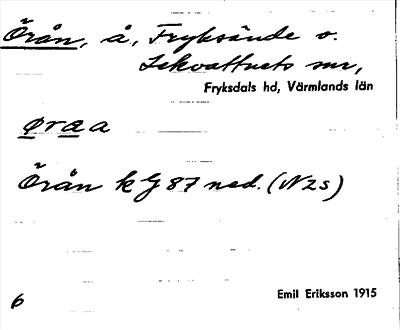 Örån, å, Fryksände o.
Lekvattnets snr,
Fryksdals hd, Värmlands län
øræa
Örån kG 87 ned. (N2s)
6
Emil Eriksson 1915